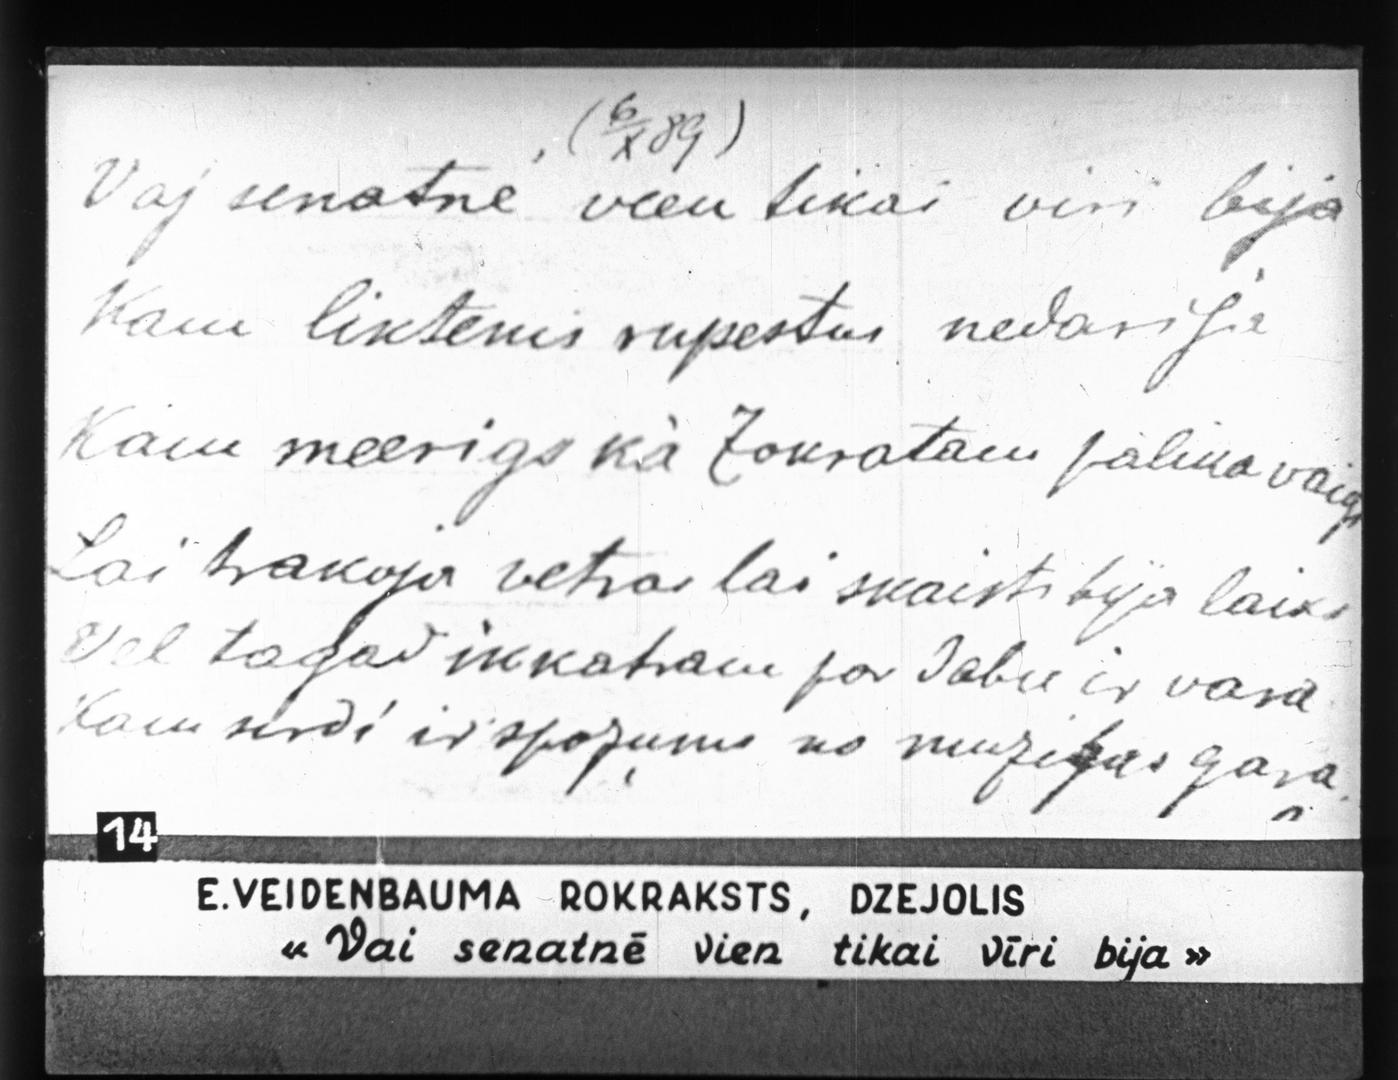 (6/X 89)
Vaj senatnē veen tikai viri bija
Kam liktenis rupestus nedarija
Kam meerigs kà Zokratam palika vaigs
Lai trakoja vetras lai skaists bija laiks
Vel tagad ikkatram par dabu ir vara
Kam sirdi ir spožums no muzibas gara
14
E.VEIDENBAUMA ROKRAKSTS, DZEJOLIS
« Vai senatnē vien tikai vīri bija »